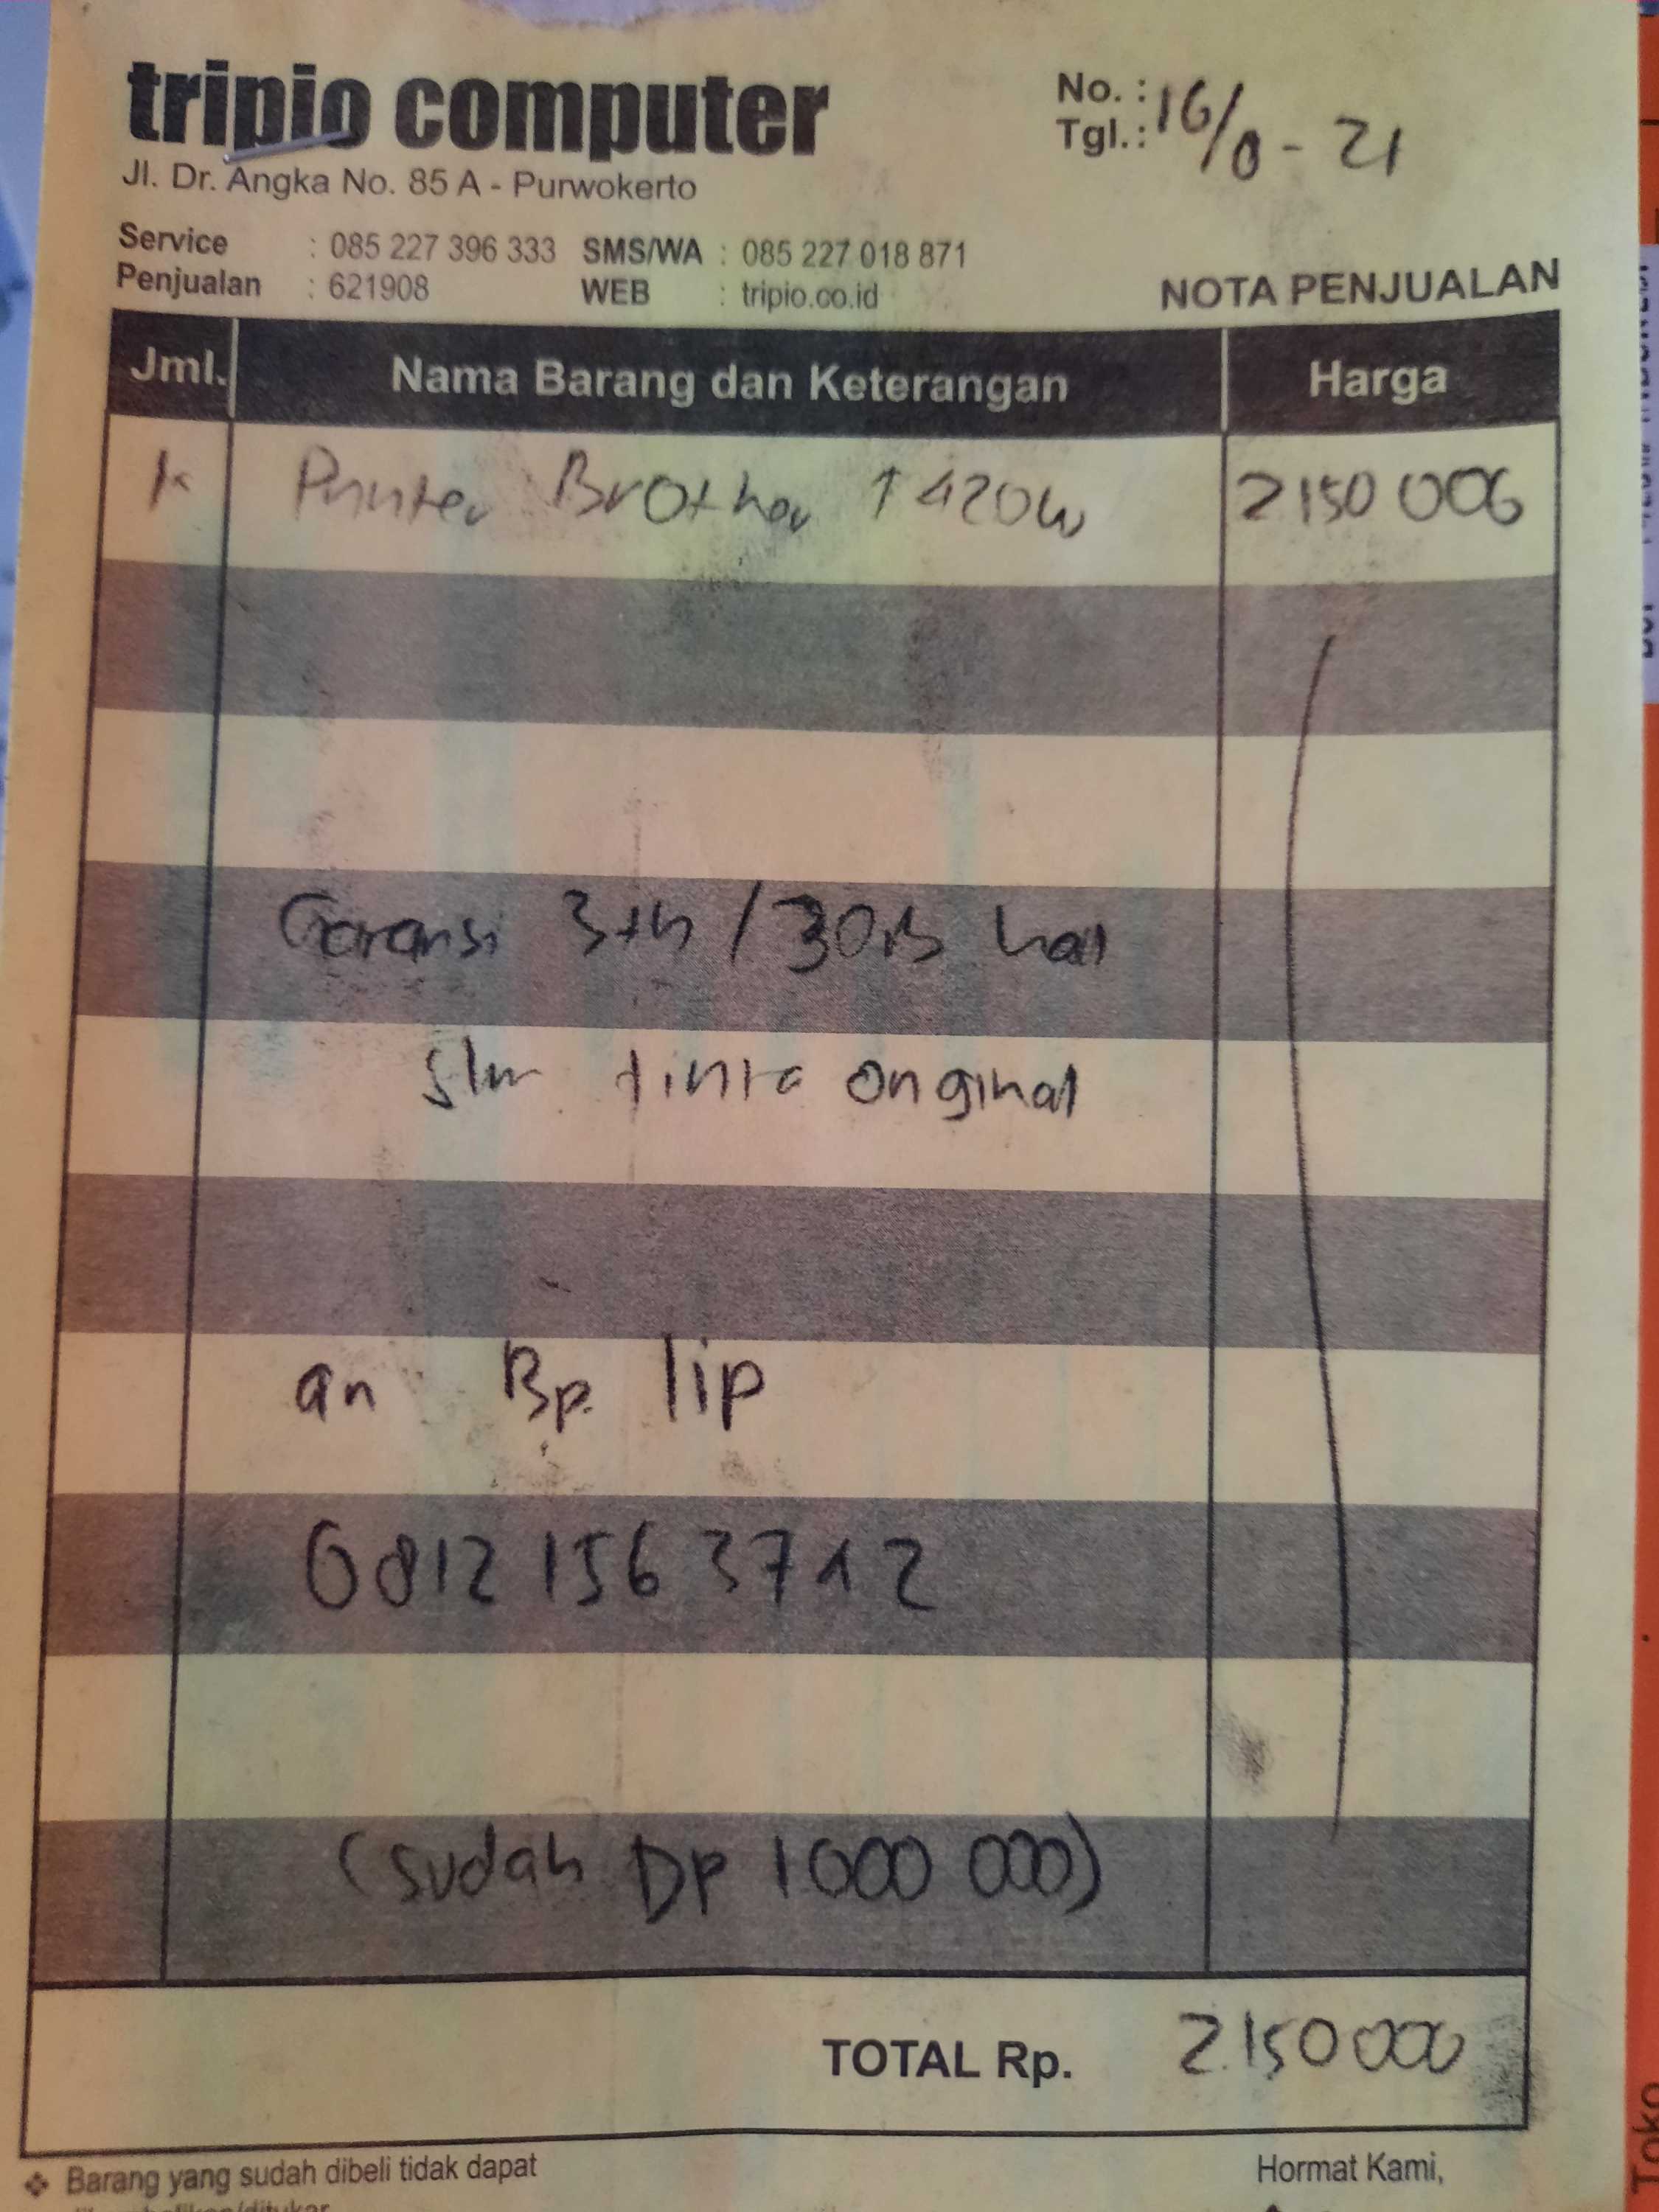 tripio computer
Jl. Dr. Angka No. 85 A - Purwokerto
No. :
Tgl.: 16/8 - 21
Service : 085 227 396 333 SMS/WA : 085 227 018 871
Penjualan : 621908 WEB : tripio.co.id
NOTA PENJUALAN
Jml. Nama Barang dan Keterangan Harga
1x Printer Brother T420W 2150 000
Garansi 3th / 30rb hal
tinta original
an Bp. Iip
0812 1563712
(sudah Dp 1000 000)
TOTAL Rp. 2.150 000
Barang yang sudah dibeli tidak dapat
Hormat Kami,
Toko